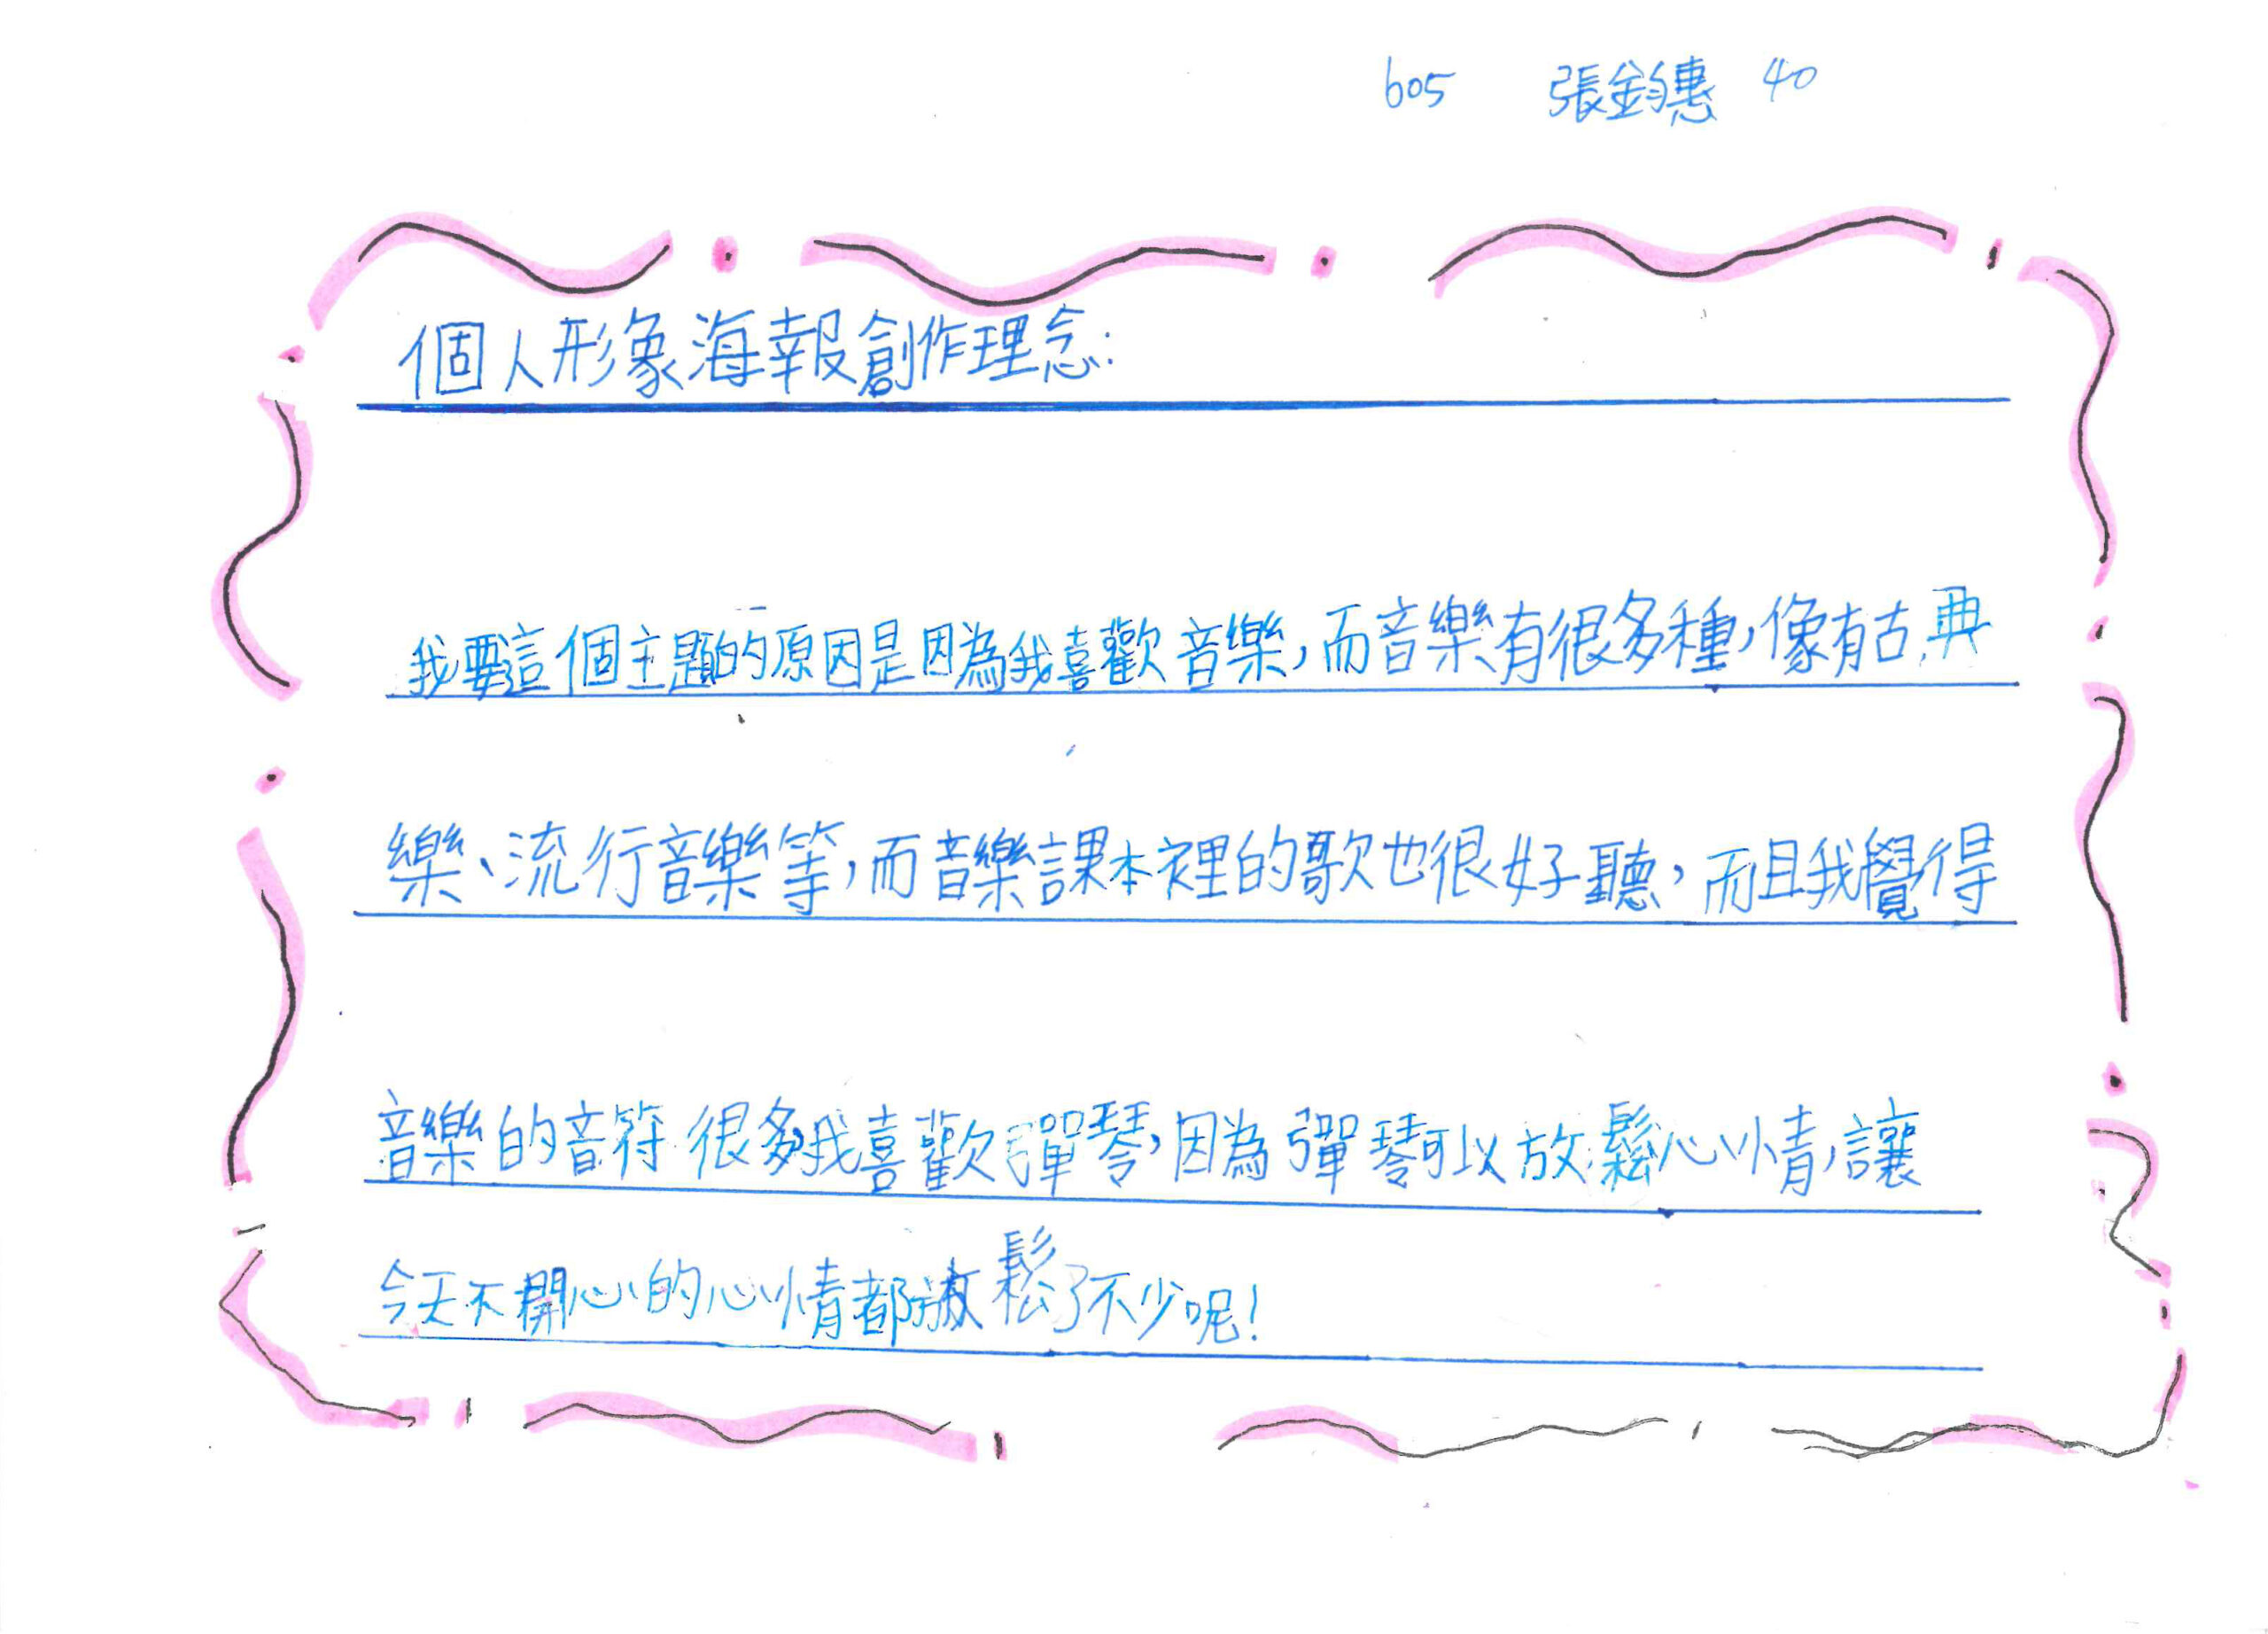 605 張鈞惠 40
個人形象海報創作理念:
我要這個主題的原因是因為我喜歡音樂,而音樂有很多種,像有古典
樂、流行音樂等,而音樂課本裡的歌也很好聽,而且我覺得
音樂的音符很多,我喜歡彈琴,因為彈琴可以放鬆心情,讓
今天不開心的心情都放鬆了不少呢!